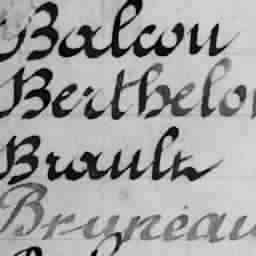 Balcou
Berthelo
Brault
Bruneau